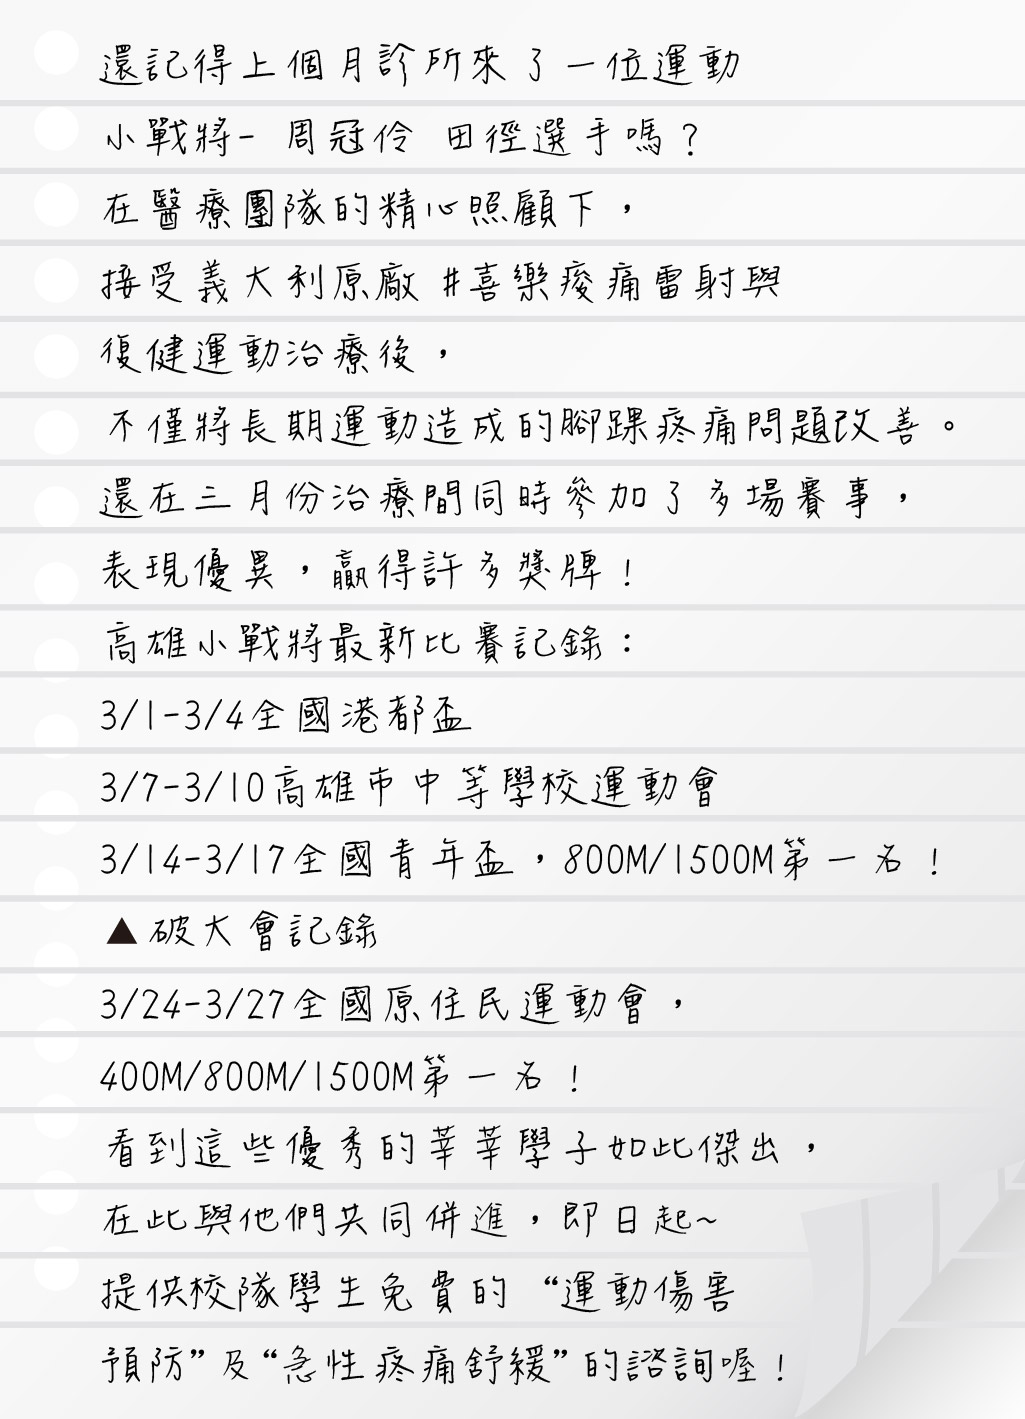 還記得上個月診所來了一位運動
小戰將- 周冠伶 田徑選手嗎？
在醫療團隊的精心照顧下，
接受義大利原廠 #喜樂痠痛雷射與
復健運動治療後，
不僅將長期運動造成的腳踝疼痛問題改善。
還在三月份治療間同時參加了多場賽事，
表現優異，贏得許多獎牌！
高雄小戰將最新比賽記錄：
3/1-3/4全國港都盃
3/7-3/10高雄市中等學校運動會
3/14-3/17全國青年盃，800M/1500M第一名！
▲破大會記錄
3/24-3/27全國原住民運動會，
400M/800M/1500M第一名！
看到這些優秀的莘莘學子如此傑出，
在此與他們共同併進，即日起~
提供校隊學生免費的 “運動傷害
預防”及“急性疼痛舒緩”的諮詢喔！